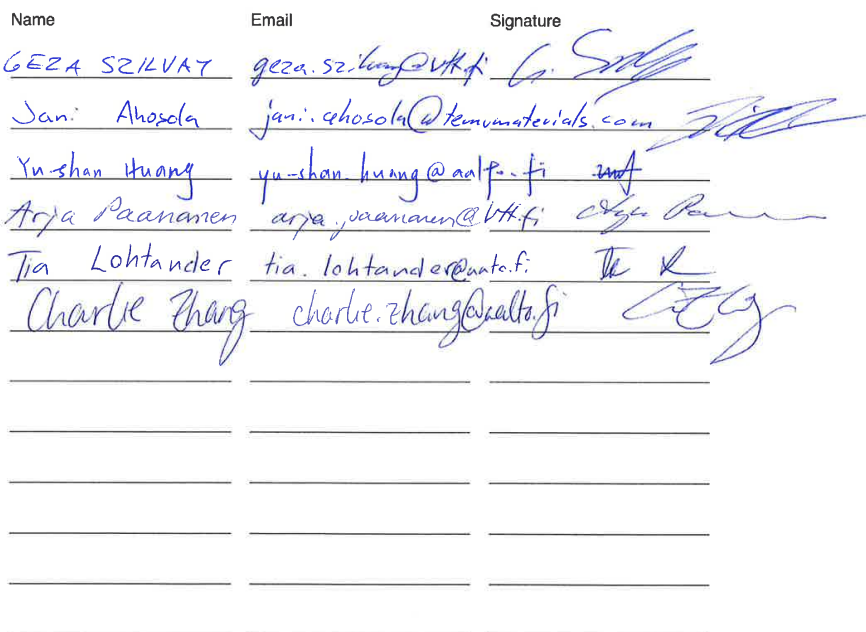 Name Email Signature
GEZA SZILVAY geza.szilvay@vtt.fi G. Szilvay
Jani Ahosola jani.ahosola@temumaterials.com
Yu-shan Huang yu-shan.huang@aalto.fi
Arja Paananen arja.paananen@vtt.fi Arja Paa
Tia Lohtander tia.lohtander@aalto.fi
Charlie Zhang charlie.zhang@aalto.fi